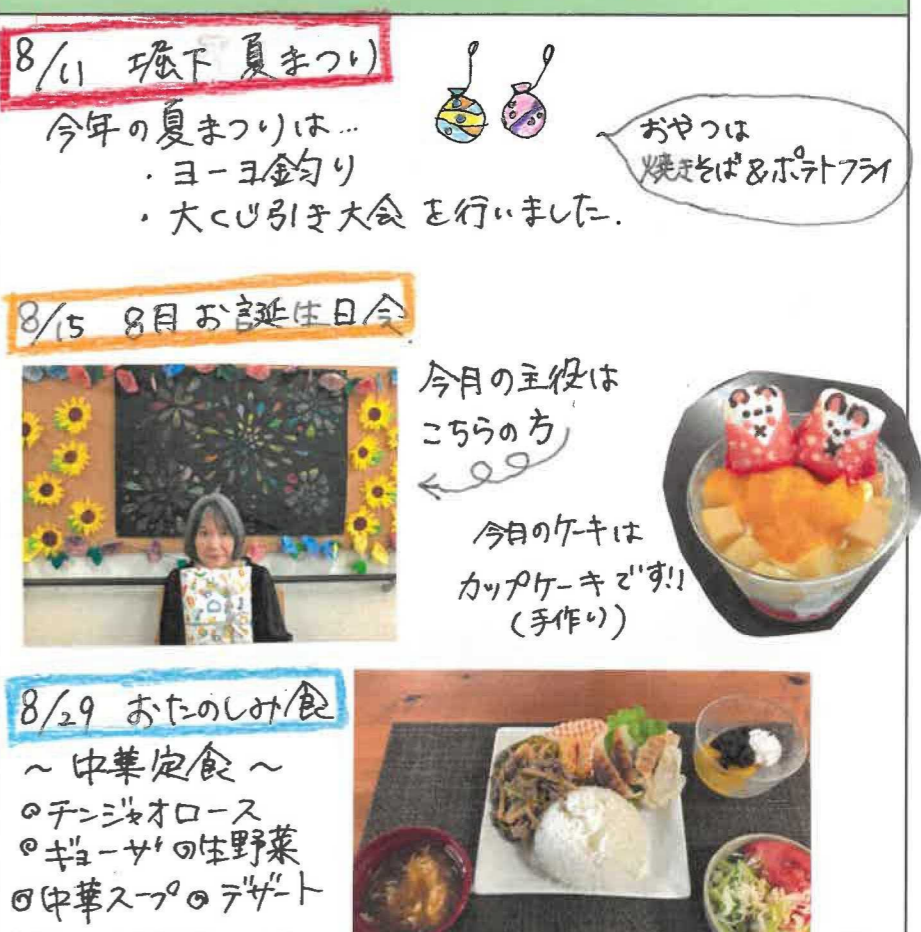 8/11 堀下 夏まつり
今年の夏まつりは…
・ヨーヨー釣り
・大くじ引き大会 を行いました.
おやつは
焼きそば&ポテトフライ
8/15 8月お誕生日会
今月の主役は
こちらの方
今月のケーキは
カップケーキです!!
(手作り)
8/29 おたのしみ食
~中華定食~
◎チンジャオロース
◎ギョーザ ◎生野菜
◎中華スープ ◎デザート